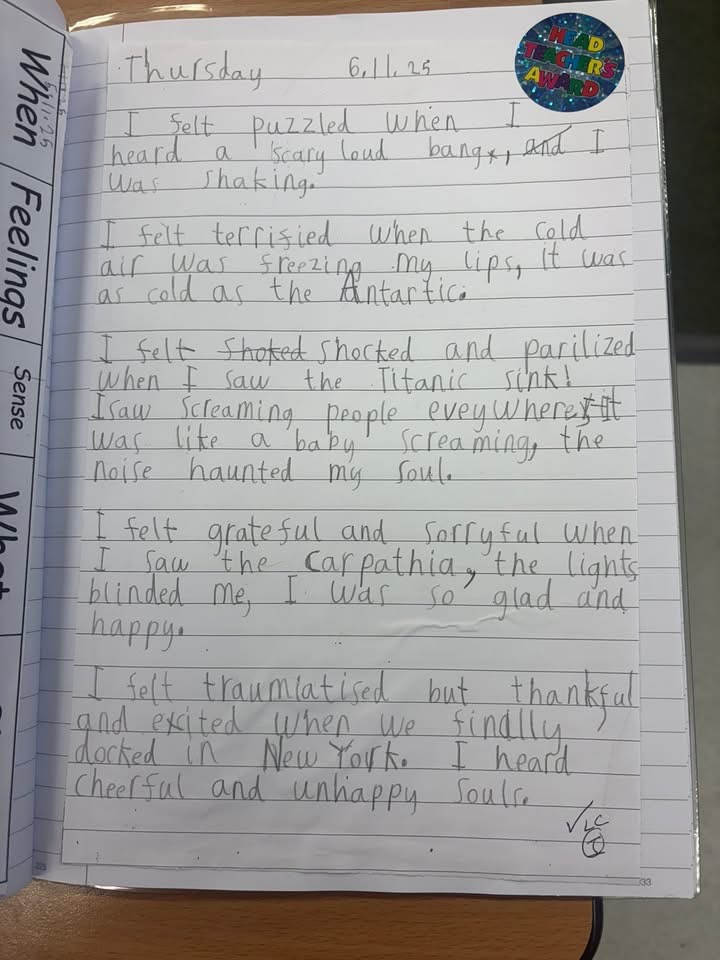 Thursday 6.11.25
HEAD
TEACHER'S
AWARD
I felt puzzled when I
heard a scary loud bang, and I
was shaking.
I felt terrified when the cold
air was freezing my lips, it was
as cold as the Antartic.
I felt Shoked shocked and parilized
when I saw the Titanic sink!
I saw screaming people eveywhere, It
was like a baby screaming, the
noise haunted my soul.
I felt grateful and sorryful when
I saw the Carpathia, the lights
blinded me, I was so glad and
happy.
I felt traumiatised but thankful
and excited when we finally
docked in New York. I heard
cheerful and unhappy souls.
33
When
6.11.25
Feelings
Sense